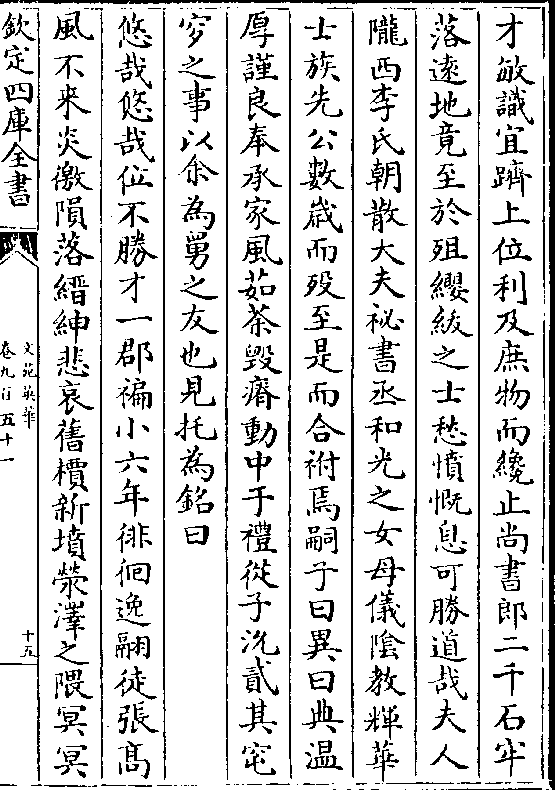 才敏識宜躋上位利及庶物而纔止尚書郎二千石牢
落逺地竟至於殂纓紱之士愁憤慨息可勝道哉夫人
隴西李氏朝散大夫祕書丞和光之女母儀陰教輝華
士族先公數嵗而殁至是而合祔焉嗣子曰異曰典温
厚謹良奉承家風茹荼毁瘠動中于禮從子沇貳其窀
穸之事以余為舅之友也見托為銘曰
悠哉悠哉位不勝才一郡褊小六年徘徊逸翮徒張髙
風不来炎徼隕落縉紳悲哀舊檟新墳滎澤之隈冥冥
欽定四庫全書
文苑英華
卷九百五十一
十五